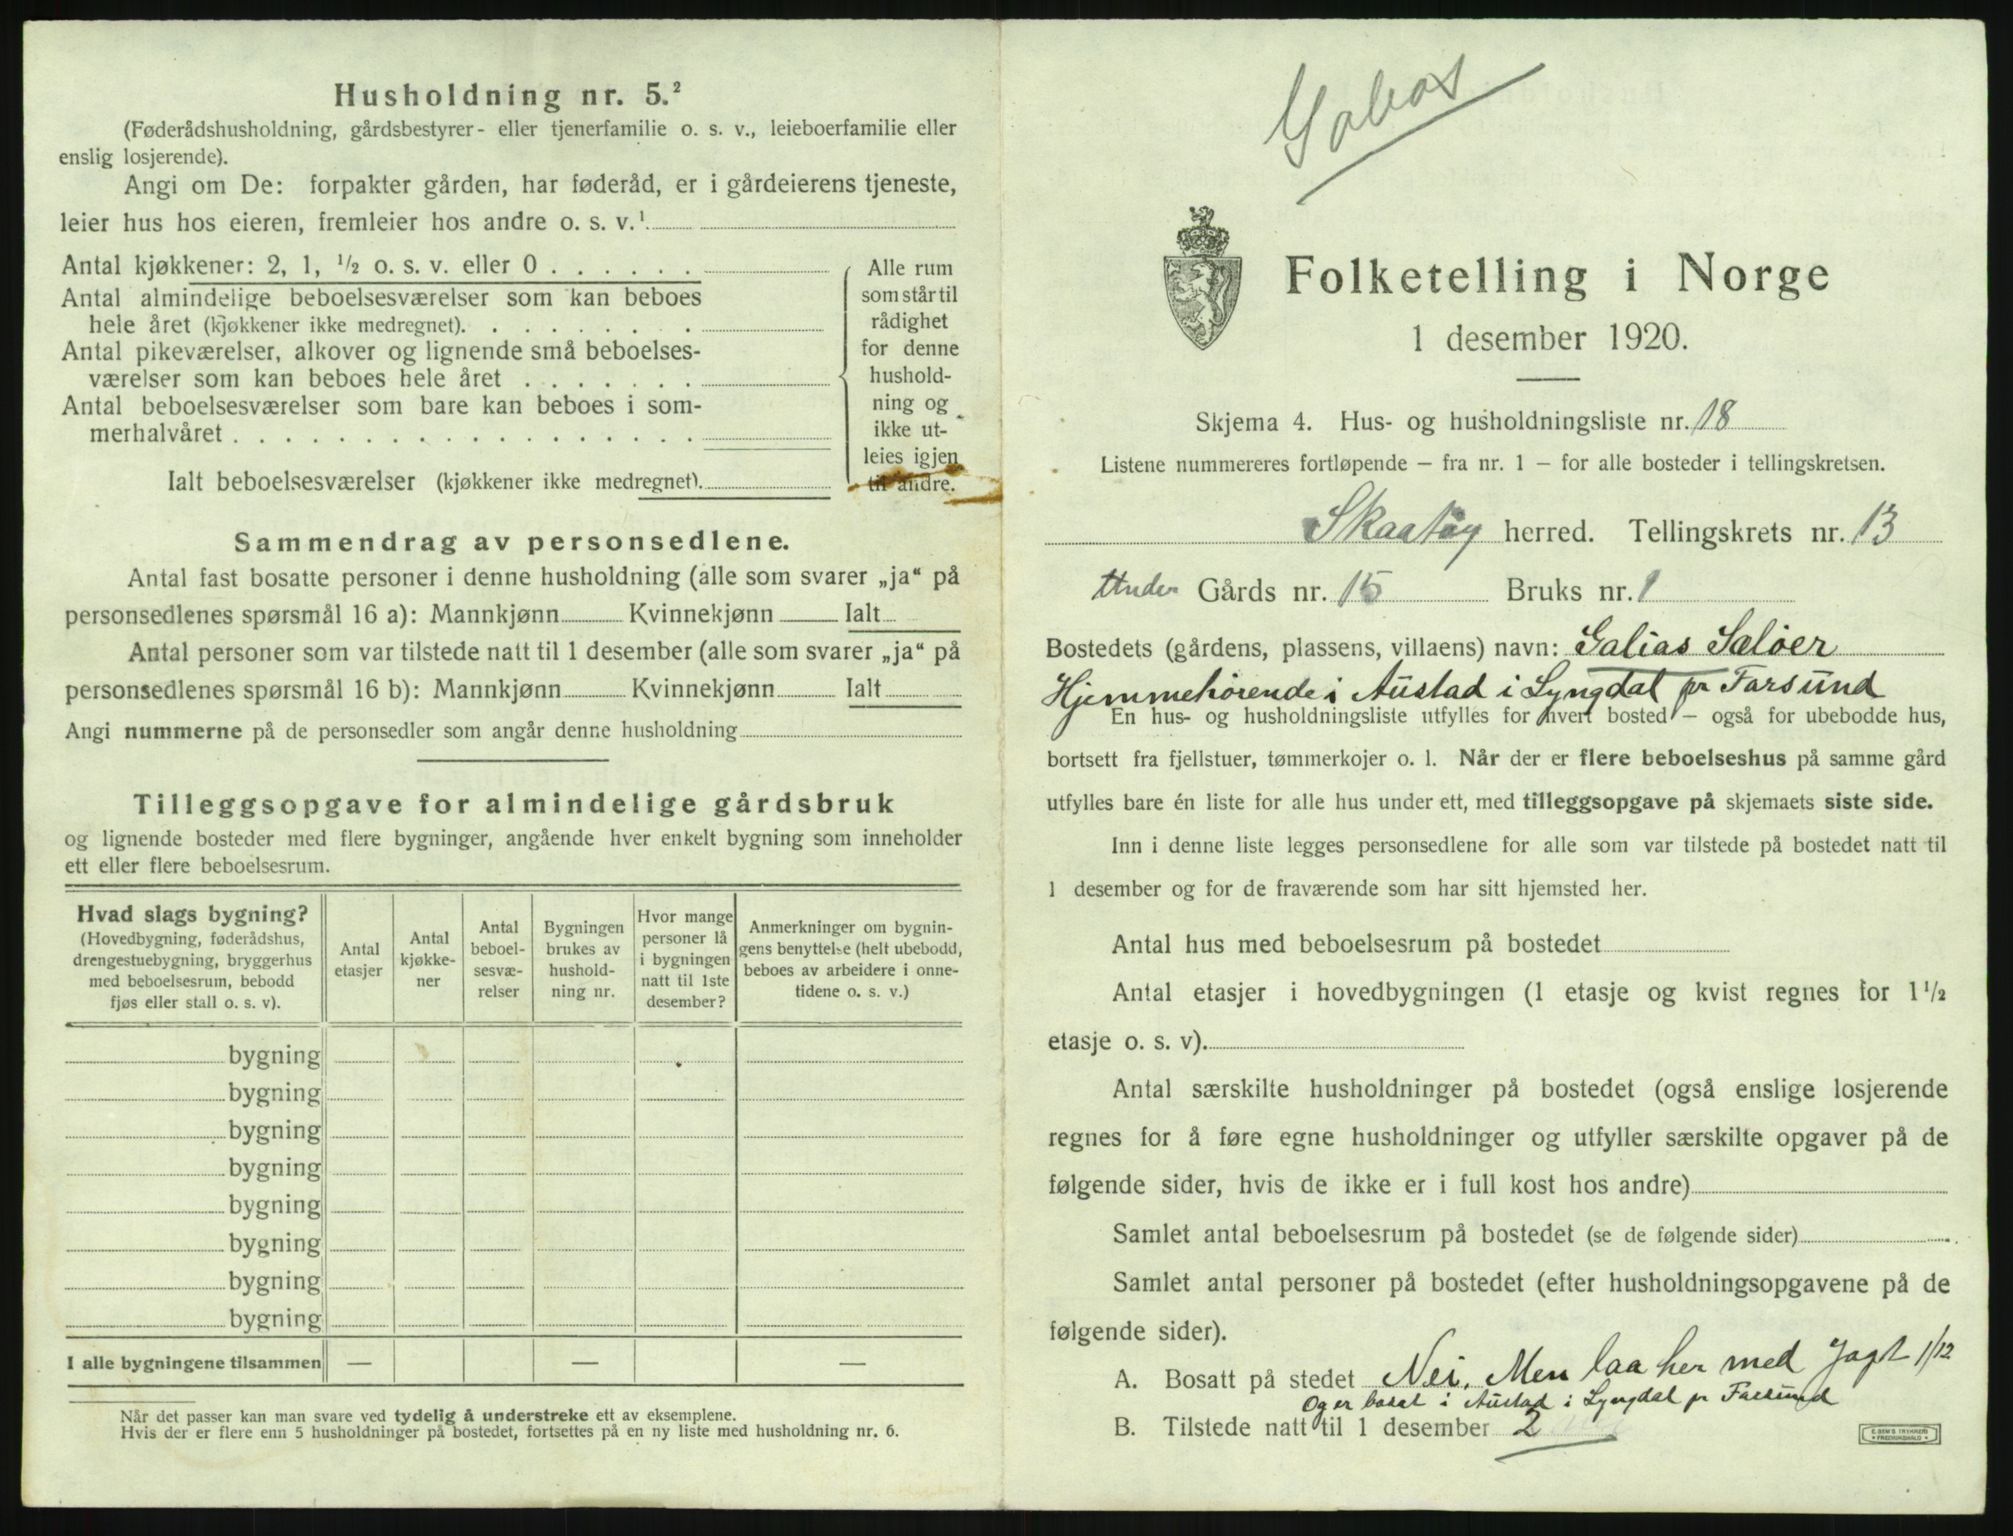 Husholdning nr. 5.²
(Føderådshusholdning, gårdsbestyrer- eller tjenerfamilie o. s. v., leieboerfamilie eller
enslig losjerende).
Angi om De: forpakter gården, har føderåd, er i gårdeierens tjeneste,
leier hus hos eieren, fremleier hos andre o. s. v.¹
Antal kjøkkener: 2, 1, ½ o. s. v. eller 0 . . . . . .
Antal almindelige beboelsesværelser som kan beboes
hele året (kjøkkener ikke medregnet). . . . . . . . .
Antal pikeværelser, alkover og lignende små beboelses-
værelser som kan beboes hele året . . . . . . .
Antal beboelsesværelser som bare kan beboes i som-
merhalvåret . . . . . . . . . . . . . . . . . .
Ialt beboelsesværelser (kjøkkener ikke medregnet).
Alle rum
som står til
rådighet
for denne
hushold-
ning og
ikke ut-
leies igjen
til andre.
Sammendrag av personsedlene.
Antal fast bosatte personer i denne husholdning (alle som svarer „ja“ på
personsedlenes spørsmål 16 a): Mannkjønn Kvinnekjønn Ialt
Antal personer som var tilstede natt til 1 desember (alle som svarer „ja“ på
personsedlenes spørsmål 16 b): Mannkjønn Kvinnekjønn Ialt
Angi nummerne på de personsedler som angår denne husholdning
Tilleggsopgave for almindelige gårdsbruk
og lignende bosteder med flere bygninger, angående hver enkelt bygning som inneholder
ett eller flere beboelsesrum.
Hvad slags bygning?
(Hovedbygning, føderådshus,
drengestuebygning, bryggerhus
med beboelsesrum, bebodd
fjøs eller stall o. s. v).
Antal
etasjer
Antal
kjøkke-
ner
Antal
beboel-
sesvæ-
relser
Bygningen
brukes av
hushold-
ning nr.
Hvor mange
personer lå
i bygningen
natt til 1ste
desember?
Anmerkninger om bygnin-
gens benyttelse (helt ubebodd,
beboes av arbeidere i onne-
tidene o. s. v.)
bygning
bygning
bygning
bygning
bygning
bygning
bygning
bygning
I alle bygningene tilsammen — — —
Når det passer kan man svare ved tydelig å understreke ett av eksemplene.
Hvis der er flere enn 5 husholdninger på bostedet, fortsettes på en ny liste med husholdning nr. 6.
Folketelling i Norge
1 desember 1920.
Skjema 4. Hus- og husholdningsliste nr. 18
Listene nummereres fortløpende – fra nr. 1 – for alle bosteder i tellingskretsen.
Skaatøy herred. Tellingskrets nr. 13
Under Gårds nr. 15 Bruks nr. 1
Bostedets (gårdens, plassens, villaens) navn: Galias Saløer
Hjemmehørende i Austad i Lyngdal pr Farsund
En hus- og husholdningsliste utfylles for hvert bosted – også for ubebodde hus,
bortsett fra fjellstuer, tømmerkojer o. l. Når der er flere beboelseshus på samme gård
utfylles bare én liste for alle hus under ett, med tilleggsopgave på skjemaets siste side.
Inn i denne liste legges personsedlene for alle som var tilstede på bostedet natt til
1 desember og for de fraværende som har sitt hjemsted her.
Antal hus med beboelsesrum på bostedet
Antal etasjer i hovedbygningen (1 etasje og kvist regnes for 1½
etasje o. s. v).
Antal særskilte husholdninger på bostedet (også enslige losjerende
regnes for å føre egne husholdninger og utfyller særskilte opgaver på de
følgende sider, hvis de ikke er i full kost hos andre)
Samlet antal beboelsesrum på bostedet (se de følgende sider)
Samlet antal personer på bostedet (efter husholdningsopgavene på de
følgende sider).
A. Bosatt på stedet Nei. Men laa her med Jagt 1/12
Og er bosat i Austad i Lyngdal pr Farsund
B. Tilstede natt til 1 desember 2
E. SEM'S TRYKKERI
FREDRIKSHALD